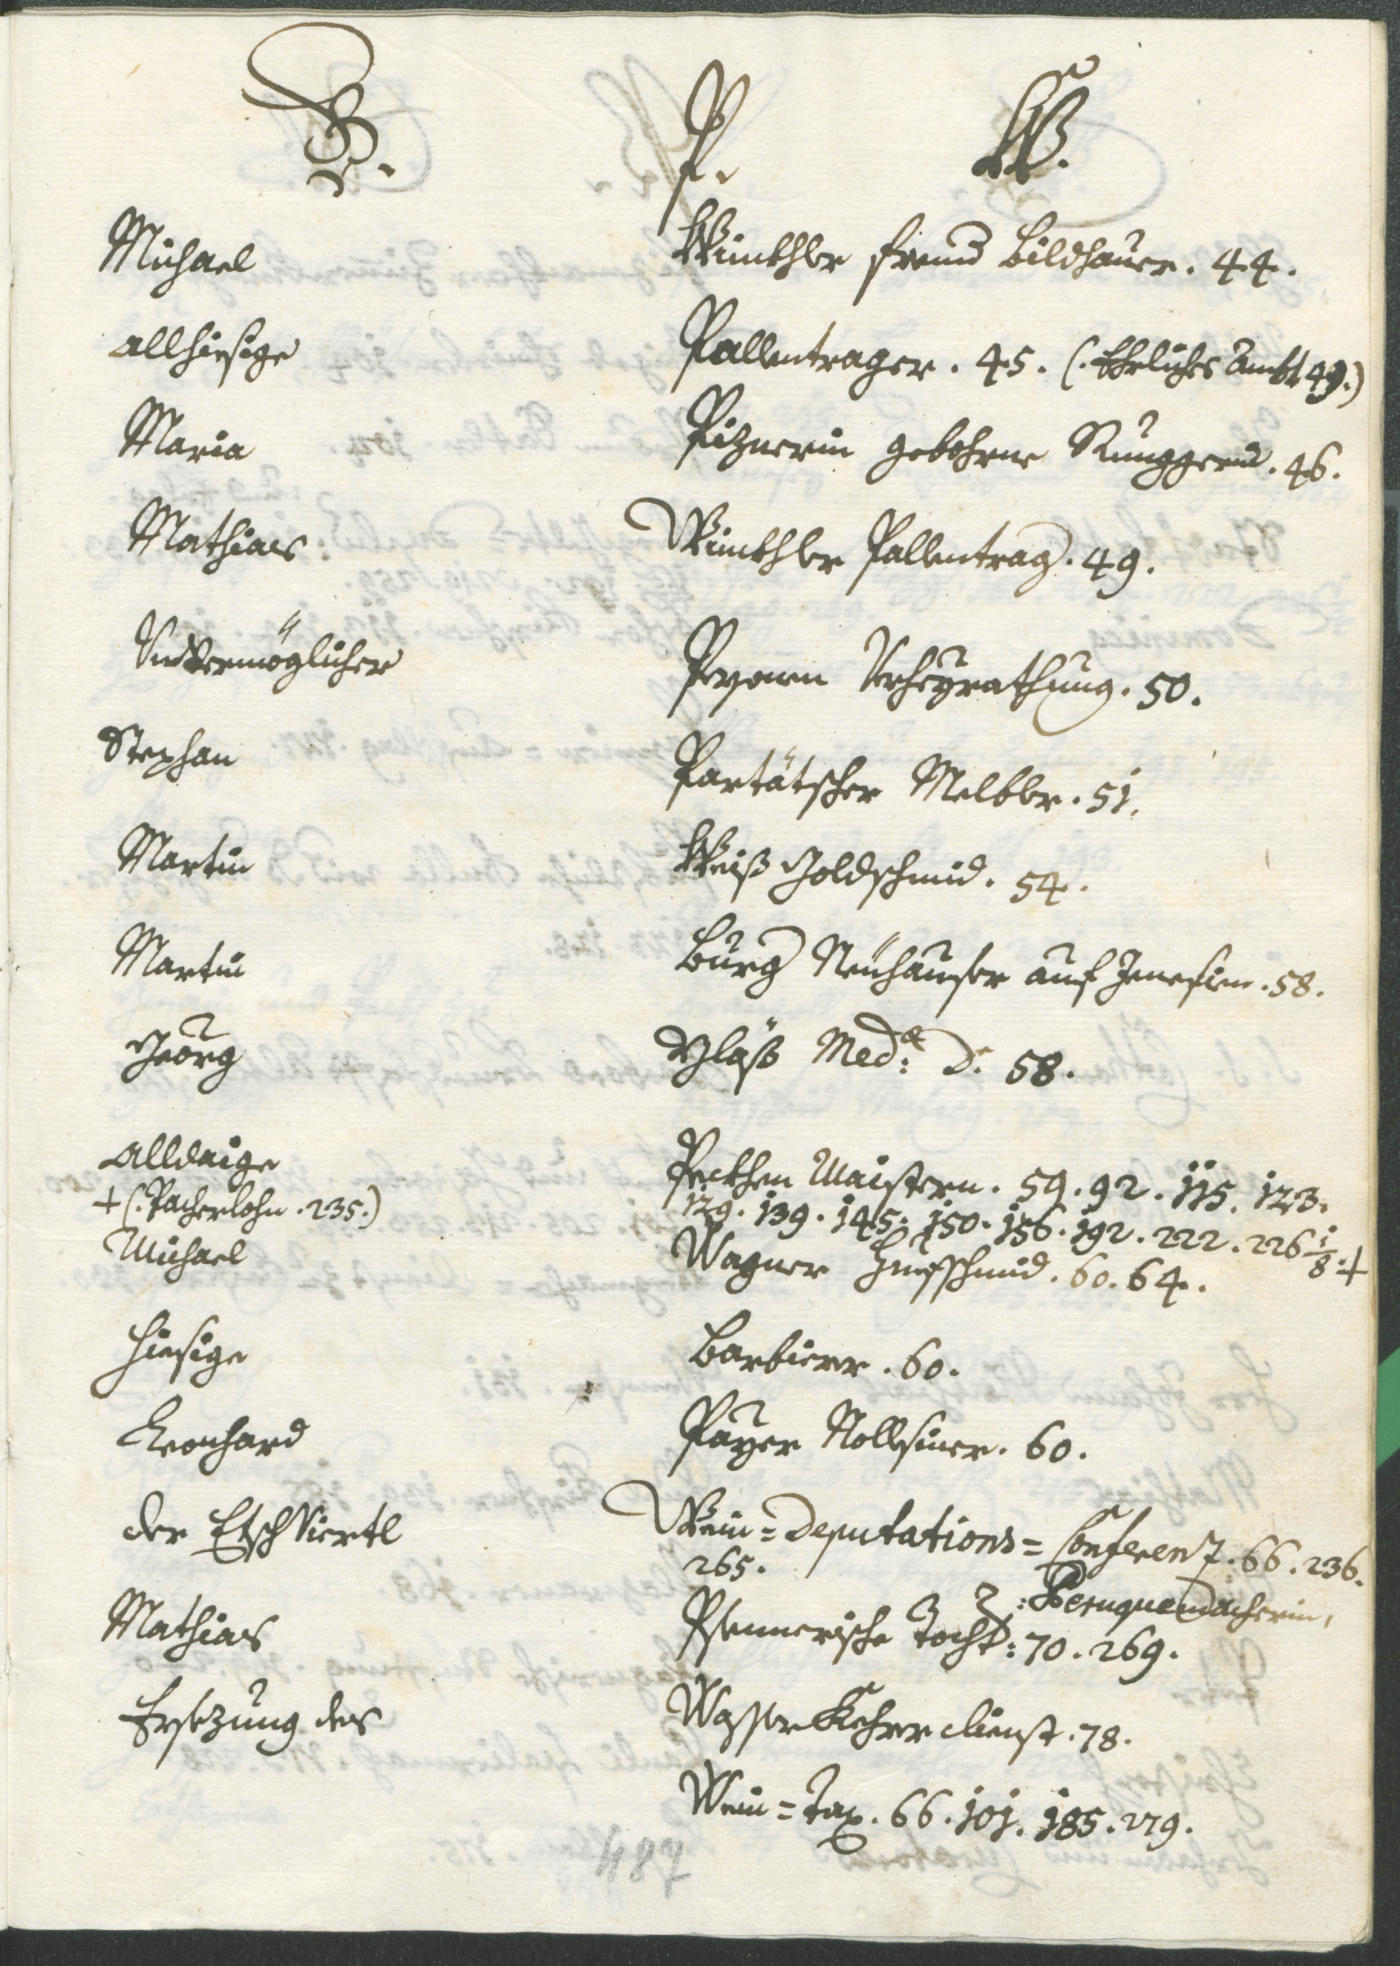 B. P. W.
Michael Winkhler fremd Bildhauer. 44.
Allhiesige Pallentrager. 45. (: Ehrliches Ambt 49.)
Maria Piznerin gebohrne Runggerin. 46.
Mathias Winkhler Pallentrag. 49.
Unvermöglicher Persohnen Verheyrathung. 50.
Stephan Partätscher Melbler. 51.
Martin Weiß Goldschmid. 54.
Martin Burg Neuhauser auf Jenesien. 58.
Georg Vläß Med: D: 58.
Alldaige Peckhen Maistern. 59. 92. 115. 123.
+ (: Pacherlohn. 235.) 129. 139. 145. 150. 156. 192. 222. 226 1/8. +
Michael Wagner Huefschmid. 60. 64.
Hiesige Barbierer. 60.
Leonhard Payer Nollsiner. 60.
Der Etsch Viertl Wein=Deputations=Conferenz. 66. 236.
265.
: Peruquemacherin,
Mathias Psennerische Tocht: 70. 269.
Ersezung des Wasser Kehrer dienst. 78.
Wein=Tax. 66. 101. 185. 279.
487